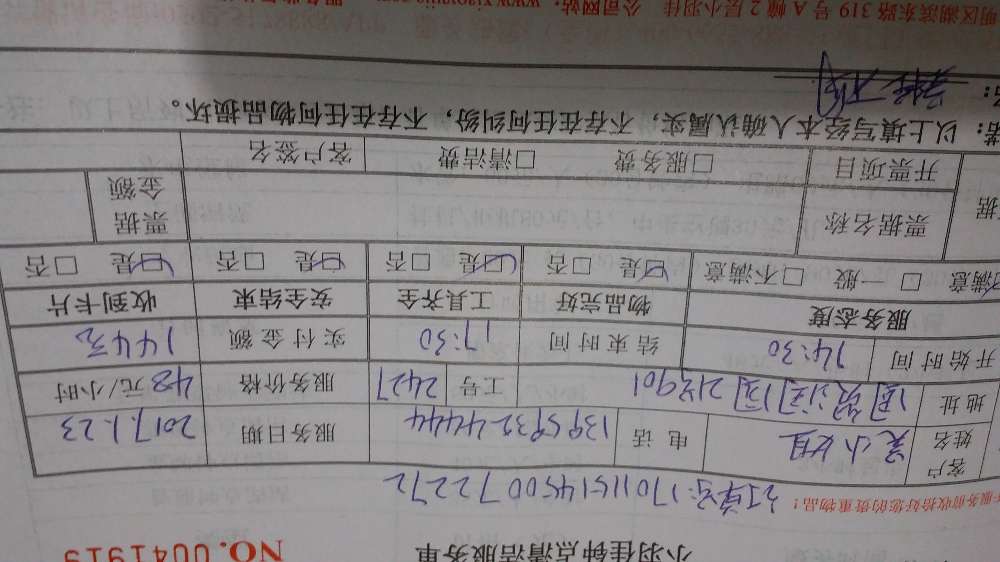 小羽佳钟点清洁服务单 NO.0041919
服务前收拾好您的贵重物品!
订单号:1701151450072272
客户姓名 吴小姐 电话 13959324444 服务日期 2017.1.23
地址 国贸 工号 2427 服务价格 48元/小时
开始时间 14:30 结束时间 17:30 实付金额 144元
服务态度 物品完好 工具齐全 安全结束 收到卡片
满意 □一般 □不满意 ☑是 □否 ☑是 □否 ☑是 □否 ☑是 □否
票据名称 票据金额
开票项目 □服务费 □清洁费 客户签名
以上填写经本人确认属实,不存在任何纠纷,不存在任何物品损坏。
明区湖滨东路 319 号 A 幢 2 层小羽佳 公司网站: